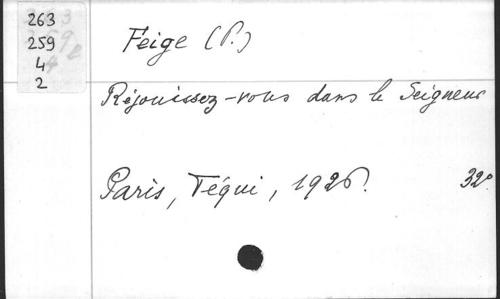 263
259
4
2
Feige (P.)
Réjouissez-vous dans le Seigneur
Paris, Téqui, 1926. 32°